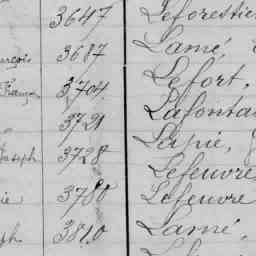 3647 Leforestie
ançois 3687 Lamé,
François 3704 Lefort,
3721 Lafonta
Joseph 3728 Lapie,
3780 Lefeuvre
ie Lefeuvre
ph 3810 Lamé,